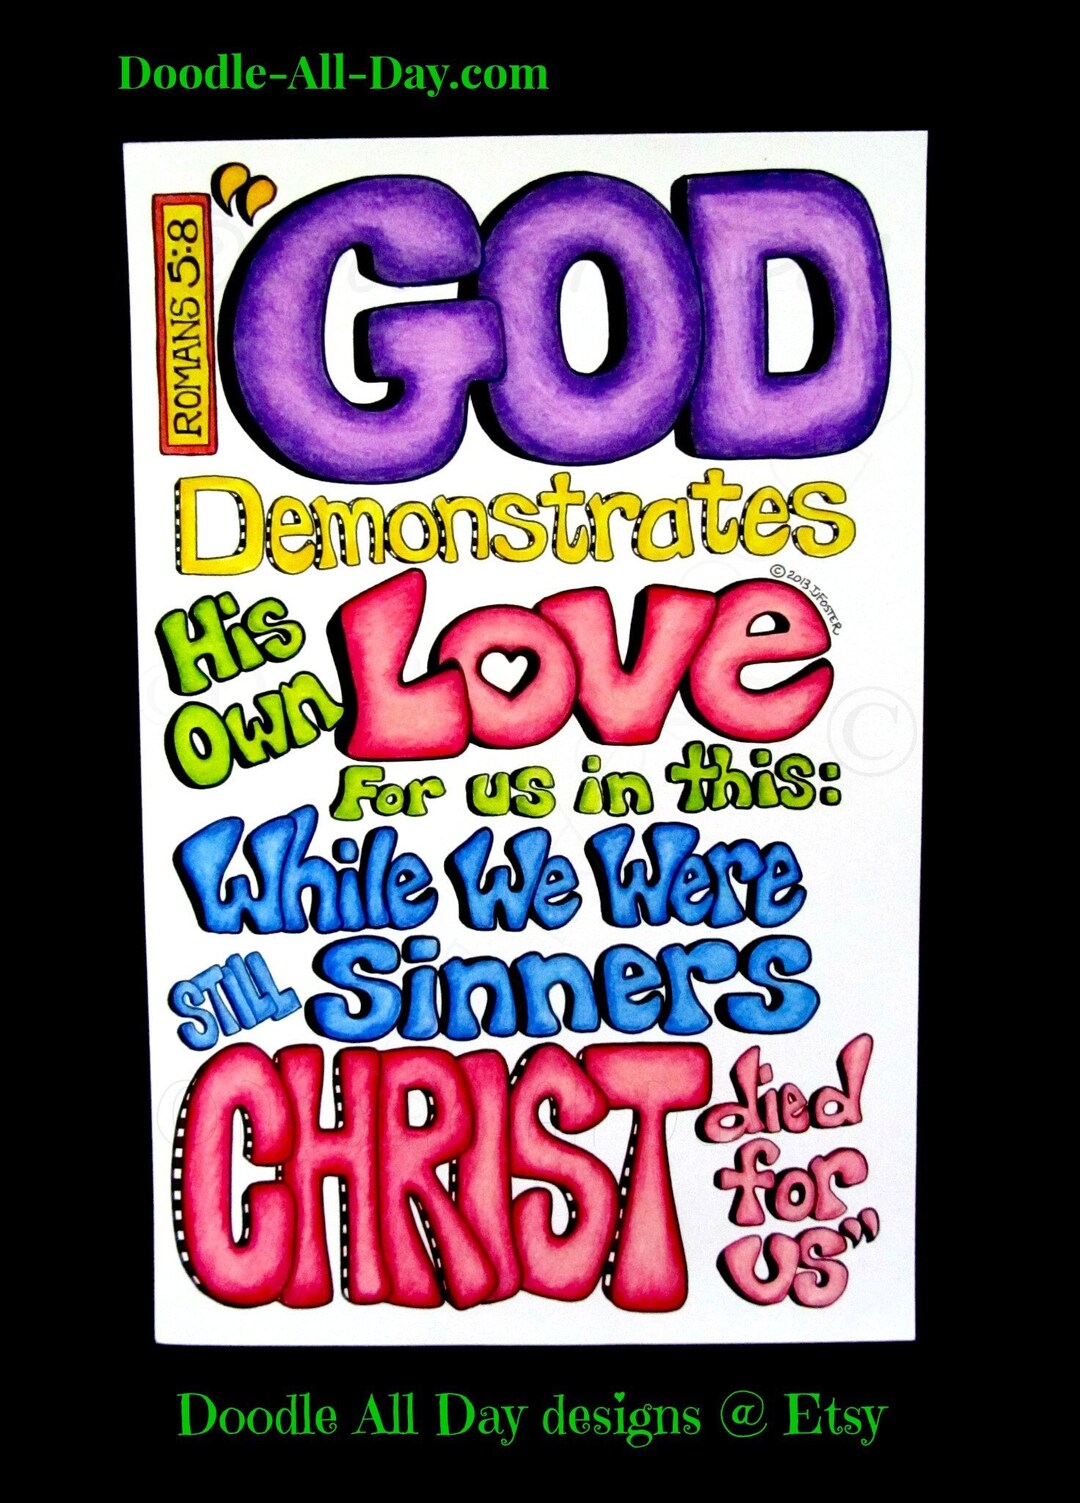 Doodle-All-Day.com
ROMANS 5:8
"GOD
Demonstrates
© 2013 JJFOSTER
His
Own
Love
For us in this:
While We Were
STILL Sinners
CHRIST
died
for
us"
©
Doodle All Day designs @ Etsy